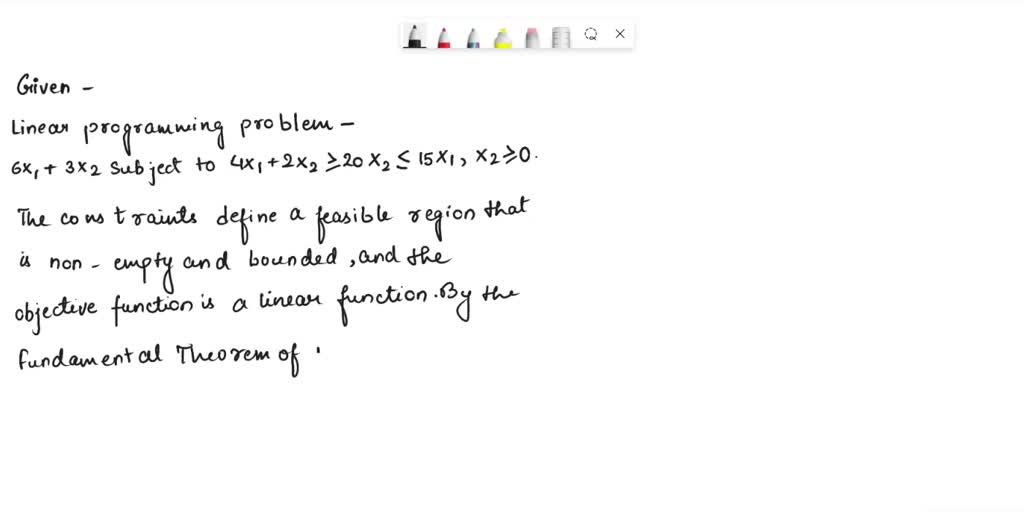 Given -
Linear programming problem -
6x₁ + 3x₂ Subject to 4x₁ + 2x₂ ≥ 20 x₂ ≤ 15 x₁, x₂ ≥ 0.
The constraints define a feasible region that
is non - empty and bounded, and the
objective function is a linear function. By the
Fundamental Theorem of